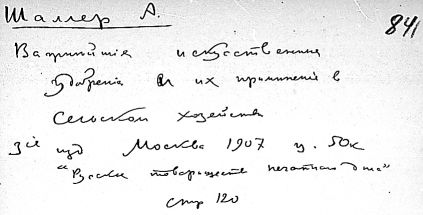 Шаллер А.
841
Важнѣйшiя искусственные
удобренiя и их примѣненiе в
Сельском хозяйстве
3е изд Москва 1907 ц. 50к
товарищество печатного дела"
стр 120